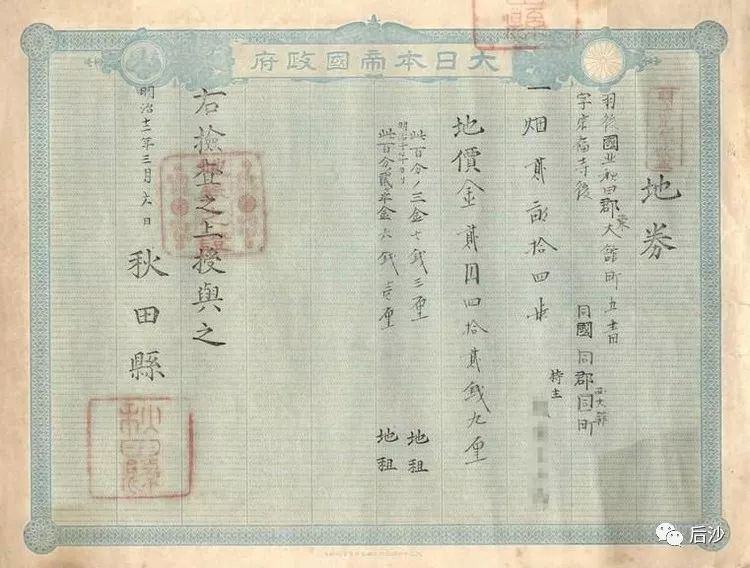 大日本帝國政府
地券
羽後國北秋田郡東大館町
字宗福寺後
同國同郡同町
一畑貳畝拾四歩
持主
地價金貳円四拾貳銭九厘
此百分ノ三金七銭三厘 地租
明治十年ヨリ
此百分ノ貳ケ半金六銭壱厘 地租
右検査之上授與之
明治十二年三月六日
秋田縣
秋田縣
后沙